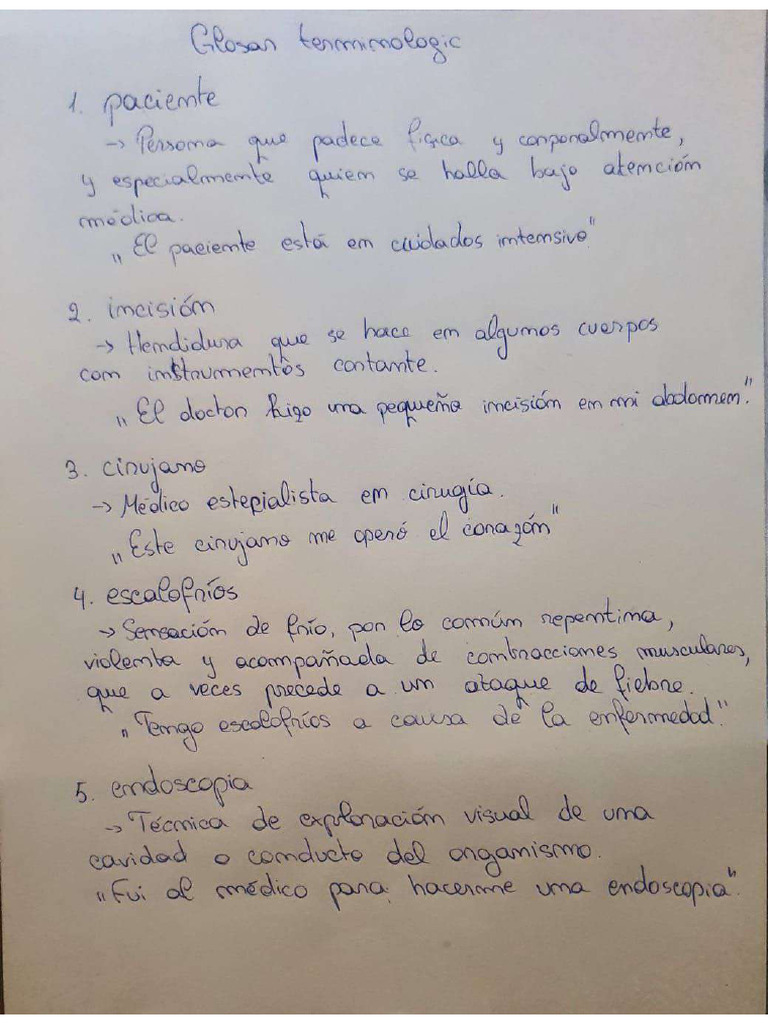 Glosar terminologic
1. paciente
→ Persona que padece física y corporalmente,
y especialmente quien se halla bajo atención
médica.
„El paciente está en cuidados intensivo"
2. incisión
→ Hendidura que se hace en algunos cuerpos
con instrumentos cortante.
„El doctor hizo una pequeña incisión en mi abdomen."
3. cirujano
→ Médico estepialista en cirugía.
„Este cirujano me operó el corazón"
4. escalofríos
→ Sensación de frío, por lo común repentina,
violenta y acompañada de contracciones musculares,
que a veces precede a un ataque de fiebre.
„Tengo escalofríos a causa de la enfermedad."
5. endoscopia
→ Técnica de exploración visual de una
cavidad o conducto del organismo.
„Fui al médico para hacerme una endoscopia".